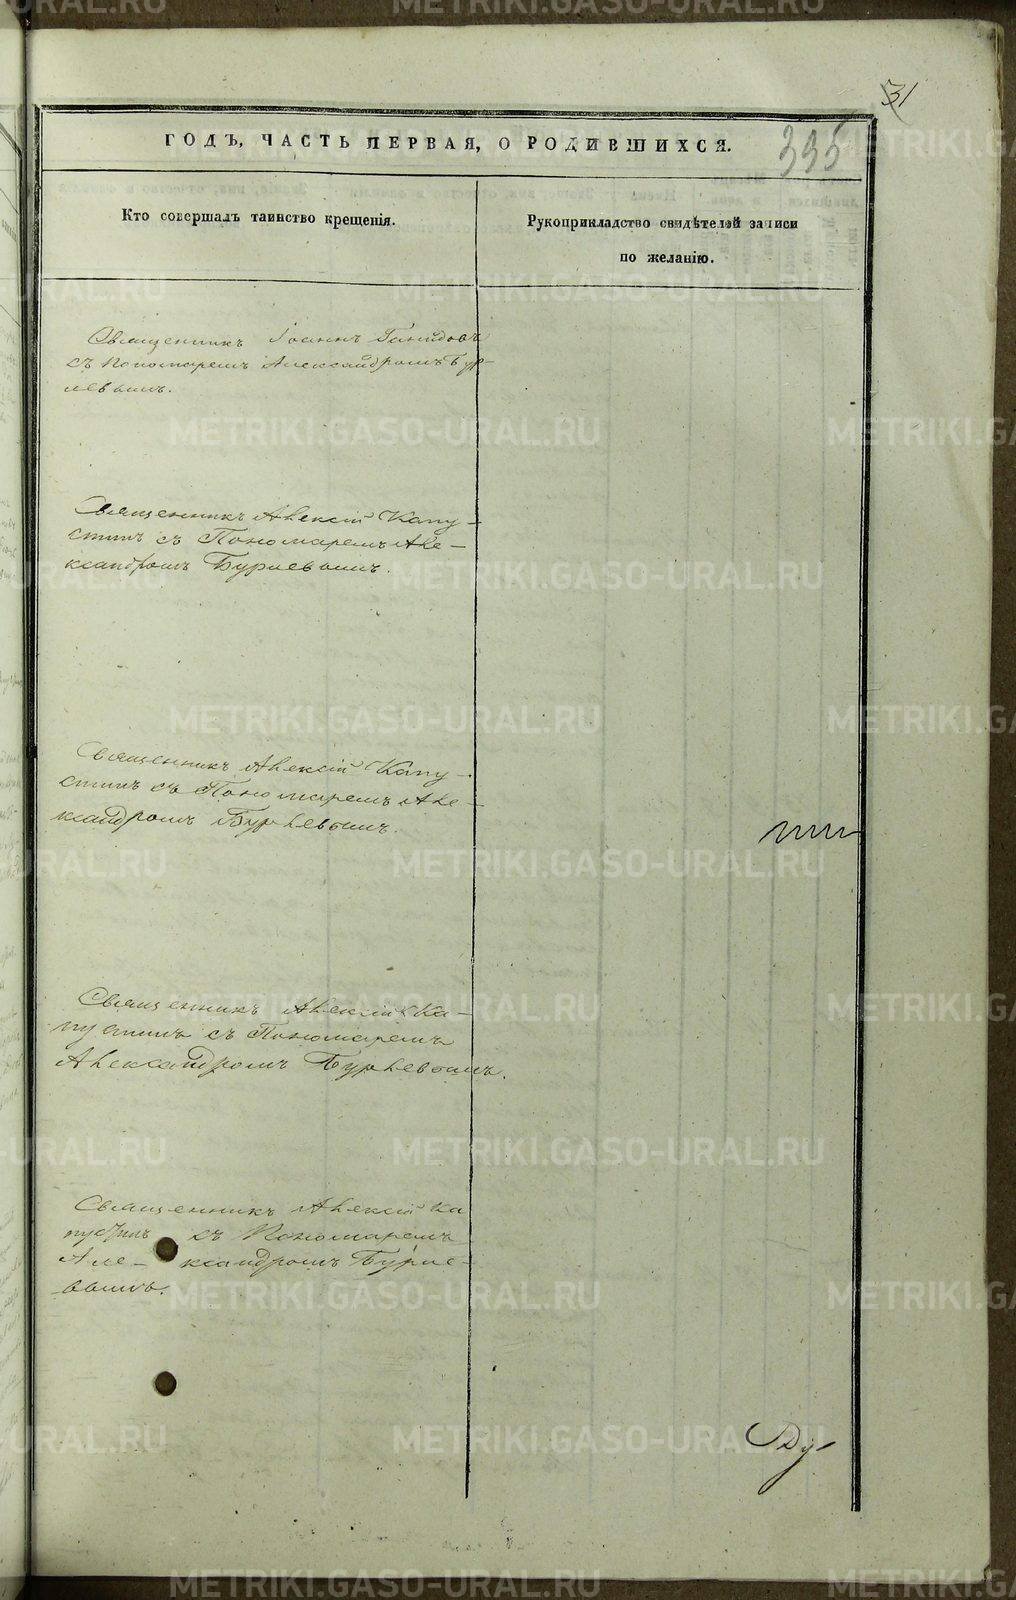 31
335
ГОДЪ, ЧАСТЬ ПЕРВАЯ, О РОДИВШИХСЯ.
Кто совершалъ таинство крещенія.
Рукоприкладство свидѣтелей записи
по желанію.
Священникъ Іоаннъ
съ Пономаремъ Александромъ Бур-
левымъ.
Священникъ Алексій Капу-
стинъ съ Пономаремъ Але-
ксандромъ Бурлевымъ.
Священникъ Алексій Капу-
стинъ съ Пономаремъ Але-
ксандромъ Бурлевымъ.
Священникъ Алексій Ка-
пустинъ съ Пономаремъ
Александромъ Бурлевымъ.
Священникъ Алексій Ка
пустинъ съ Пономаремъ
Але- ксандромъ Бурле-
вымъ.
METRIKI.GASO-URAL.RU